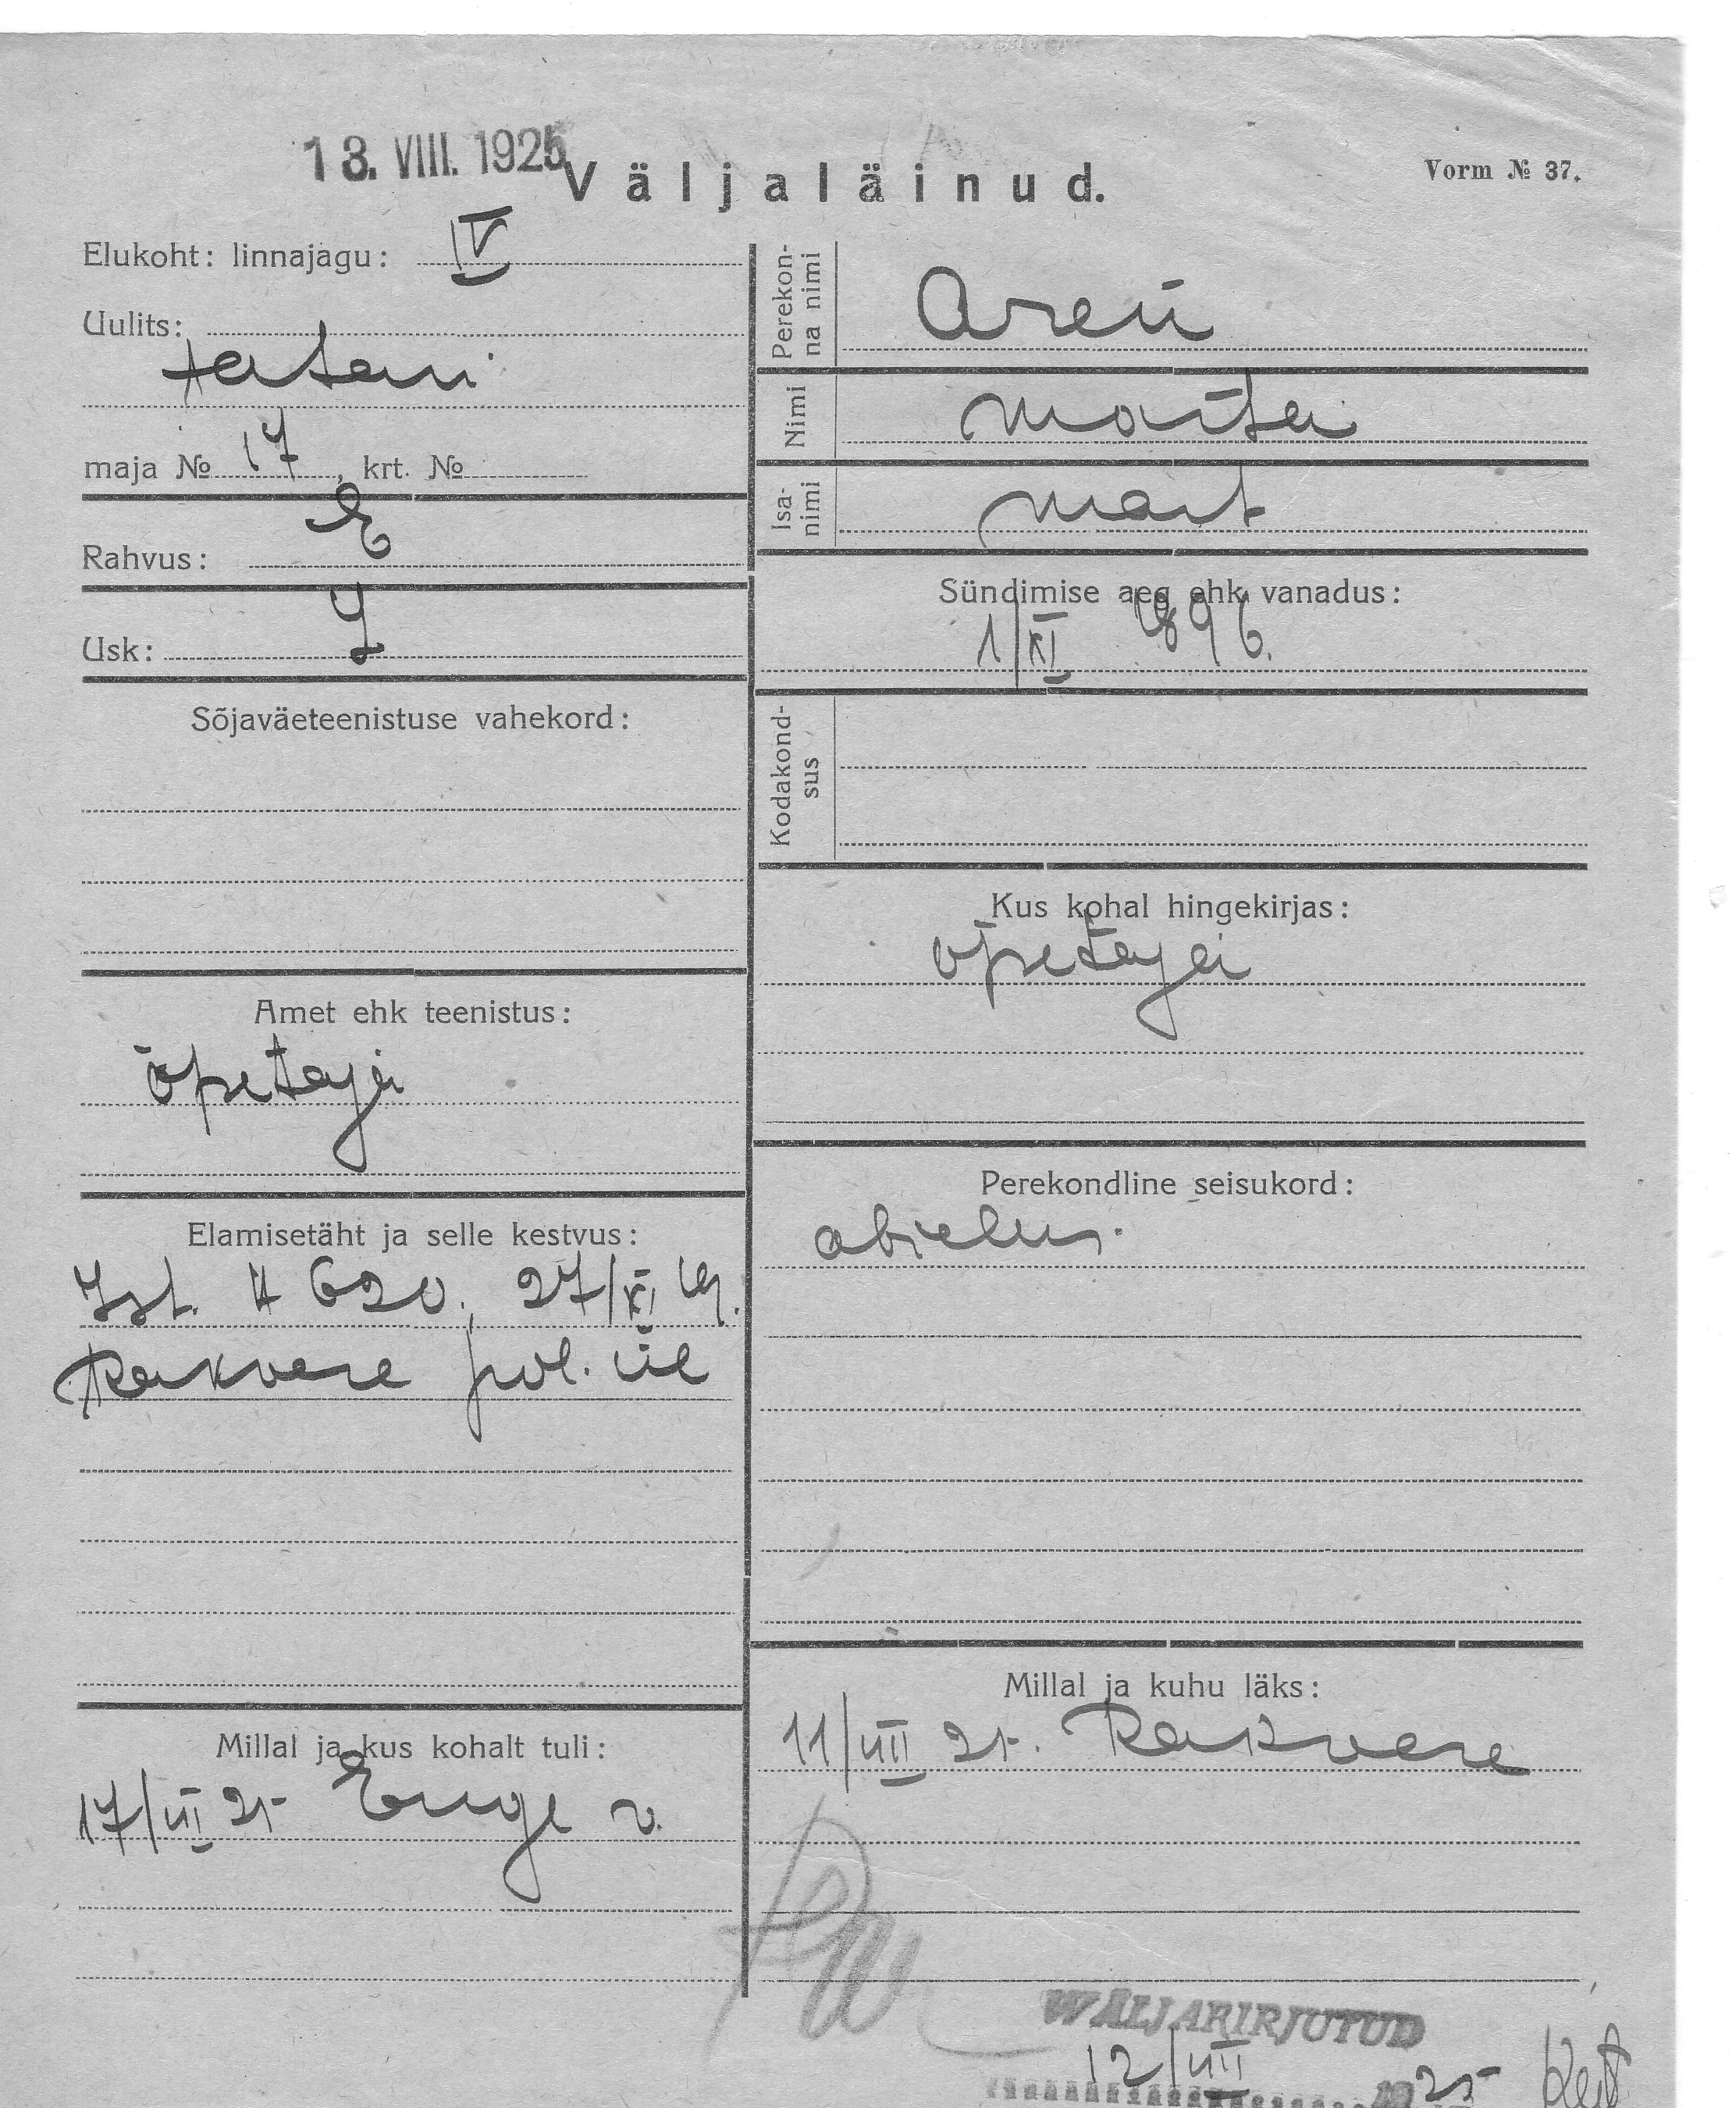 13. VIII. 1925
Väljaläinud.
Vorm № 37.
Elukoht: linnajagu: IV
Uulits:
tatari
maja № 17, krt. №
Rahvus: E
Usk: L
Sõjaväeteenistuse vahekord:
Amet ehk teenistus:
õpetaja
Elamisetäht ja selle kestvus:
Ist. № 620, 27/XI 19.
Rakvere pol. ül
Millal ja kus kohalt tuli:
17/VII 25
Perekonna nimi
Nimi
Isanimi Mart
Sündimise aeg ehk vanadus:
1/XI 1896.
Kodakondsus
Kus kohal hingekirjas:
õpetaja
Perekondline seisukord:
abielus.
Millal ja kuhu läks:
11/VIII 25. Rakvere
WÄLJAKIRJUTUD
12/VIII 1925